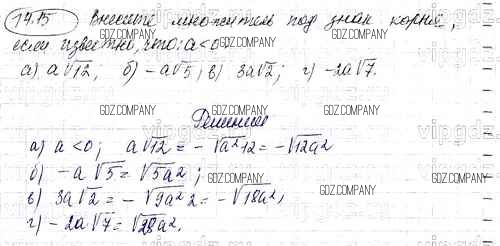 14.15 Внесите множитель под знак корня,
если известно, что: a<0
а) a√12; б) -a√5; в) 3a√2; г) -2a√7.
Решение
а) a<0; a√12 = -√a²12 = -√12a²
б) -a√5 = √5a²;
в) 3a√2 = -√9a²2 = -√18a²,
г) -2a√7 = √28a².
GDZ.COMPANY
GDZ.COMPANY
GDZ.COMPANY
GDZ.COMPANY
GDZ.COMPANY
GDZ.COMPANY
GDZ.COMPANY
GDZ.COMPANY